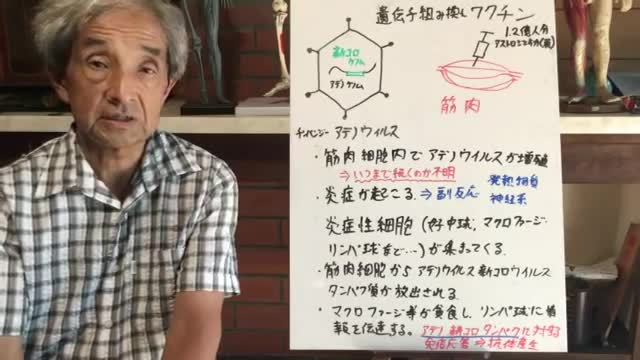 遺伝子組み換えワクチン
1.2億人分
アストロゼネカ(英)
新コロ
ゲノム
アデノゲノム
筋肉
チンパンジー アデノウィルス
・筋肉細胞内でアデノウイルスが増殖
⇒いつまで続くのか不明
・炎症が起こる ⇒副反応
発熱物質
神経系
炎症性細胞(好中球,マクロファージ,
リンパ球など…)が集まってくる.
・筋肉細胞からアデノウイルス新コロウイルス
タンパク質が放出される
・マクロファージ等が貪食し、リンパ球に情
報を伝達する。アデノ新コロタンパクに対する
免疫応答⇒抗体産生